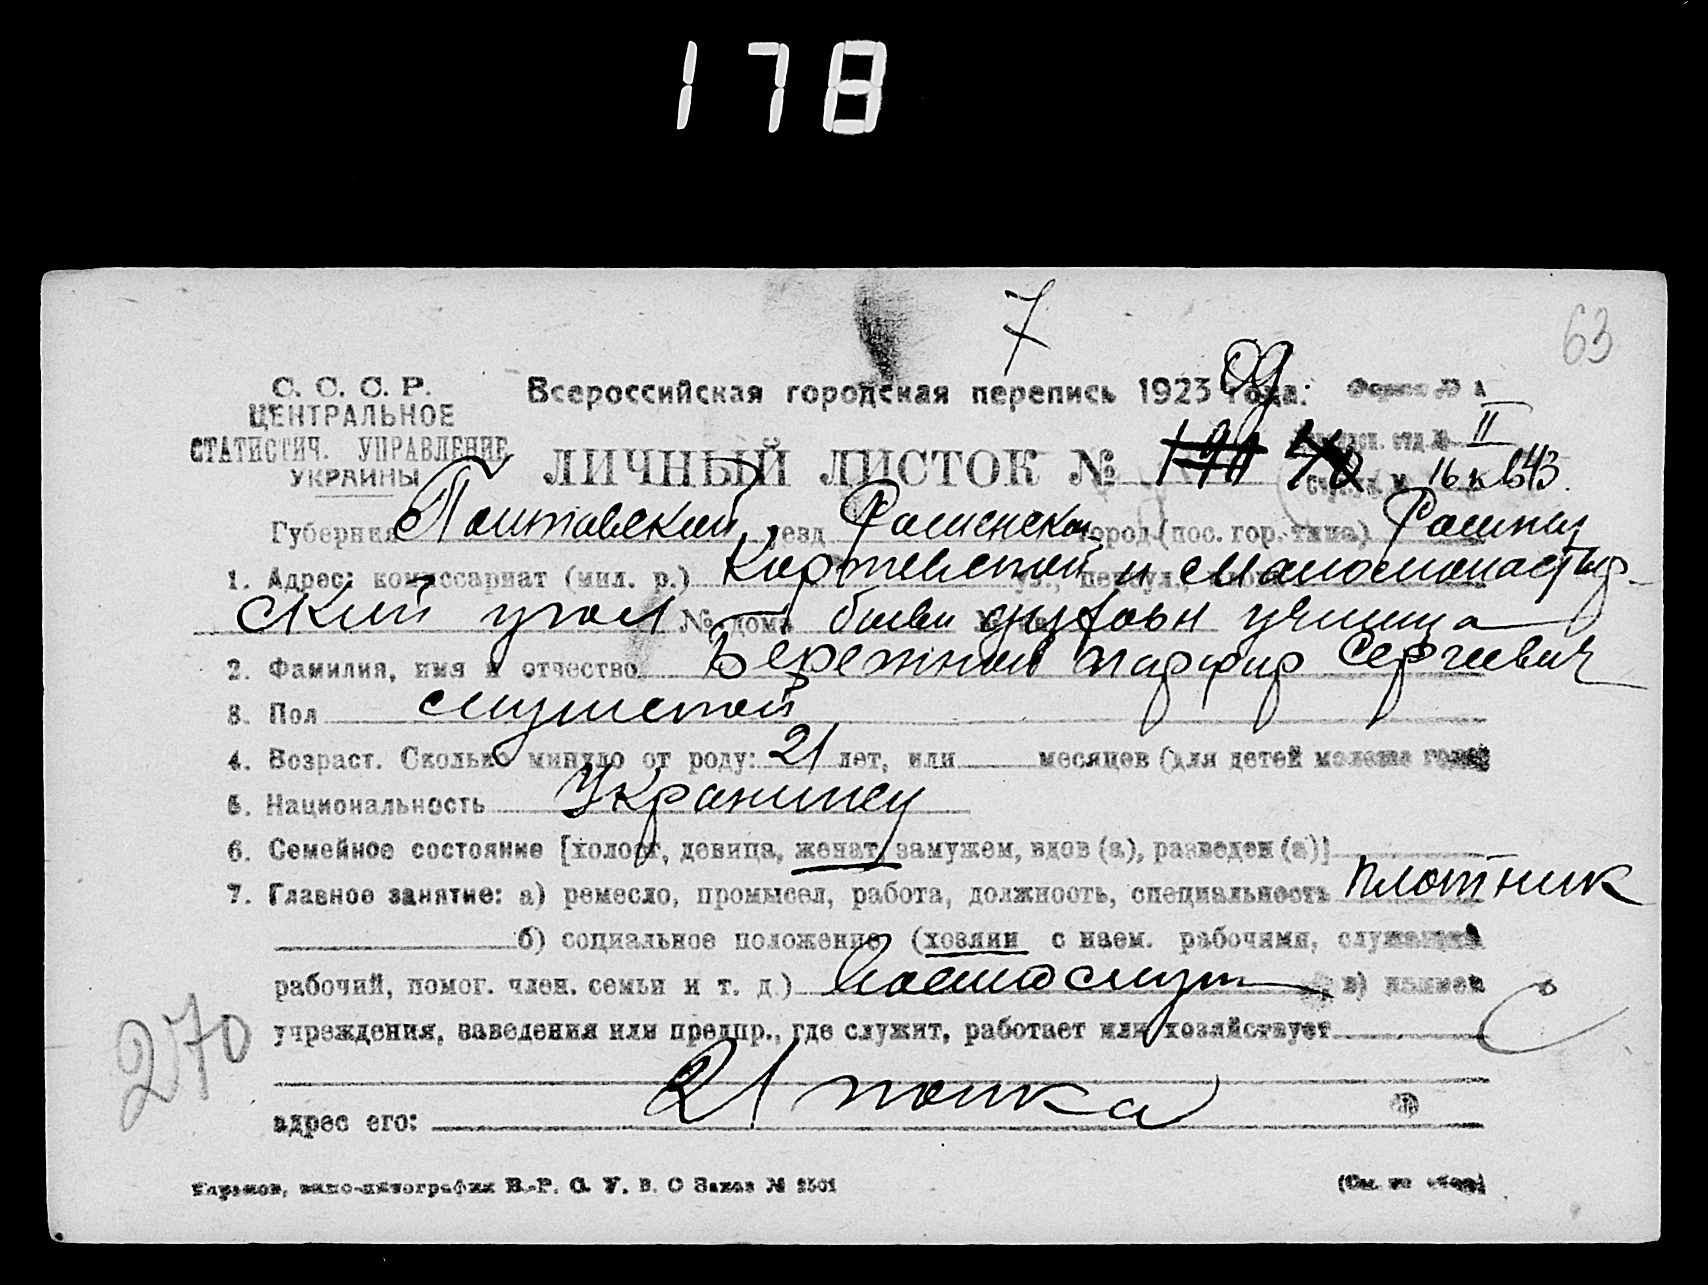 178
7
63
С. С. С. Р.
ЦЕНТРАЛЬНОЕ
СТАТИСТИЧ. УПРАВЛЕНИЕ
УКРАИНЫ
Всероссийская городская перепись 1923 года.
ЛИЧНЫЙ ЛИСТОК №
II
Губерния Полтавский уезд Роменской город (пос. гор. типа) Ромны
1. Адрес: комиссариат (мил. р.) и
ский угол № дома училища
2. Фамилия, имя и отчество Бережной Парфир Сергеевич
3. Пол мужской
4. Возраст. Сколько минуло от роду: 21 лет, или месяцев (для детей моложе года
5. Национальность Украинец
6. Семейное состояние [холост, девица, женат, замужем, вдов (а), разведен (а)]
7. Главное занятие: а) ремесло, промысел, работа, должность, специальность плотник
б) социальное положение (хозяин с наем. рабочими, служащий
рабочий, помог. член. семьи и т. д.) военнослуж в) наимен
учреждения, заведения или предпр., где служит, работает или хозяйствует
21 полка
адрес его:
270